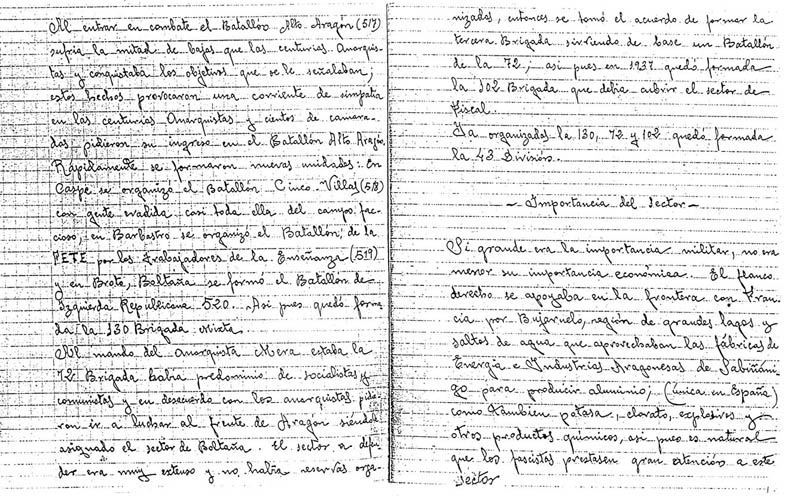 Al entrar en combate el Batallón Alto Aragón (517)
sufría la mitad de bajas que las centurias Anarquis-
tas y conquistaba los objetivos que se le señalaban;
estos hechos provocaron una corriente de simpatía
en las centurias Anarquistas y cientos de camara-
das pidieron su ingreso en el Batallón Alto Aragón.
Rápidamente se formaron nuevas unidades: En
Caspe se organizó el Batallón Cinco Villas (518)
con gente evadida casi toda ella del campo fac-
cioso, en Barbastro se organizó el Batallón, de la
FETE por los Trabajadores de la Enseñanza (519)
y en Brotó, Boltaña se formó el Batallón de
Izquierda Republicana 520. Así pues quedó forma-
da la 130 Brigada Mixta.
Al mando del anarquista Mera estaba la
72 Brigada había predominio de socialistas y
comunistas y en desacuerdo con los anarquistas pidie-
ron ir a luchar al frente de Aragón siéndole
asignado el sector de Boltaña. El sector a defen-
der era muy extenso y no había reservas orga-
nizadas, entonces se tomó el acuerdo de formar la
tercera Brigada sirviendo de base un Batallón
de la 72, así pues en 1937 quedó formada
la 102 Brigada que debía cubrir el sector de
Fiscal.
Ya organizadas la 130, 72 y 102 quedó formada
la 43 División.
- Importancia del Sector -
Si grande era la importancia militar, no era
menor su importancia económica. El flanco
derecho se apoyaba en la frontera con Fran-
cia por Bujaruelo, región de grandes lagos y
saltos de agua que aprovechaban las fábricas de
Energía e Industrias Aragonesas de Sabiñáni-
go para producir aluminio; (única en España)
como también potasa, clorato, explosivos y
otros productos químicos, así pues es natural
que los fascistas prestasen gran atención a este
sector